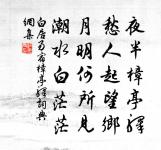 夜半樟亭驛
愁人起望鄉
月明何所見
潮水白茫茫
白居易宿樟亭驛詞典
網集